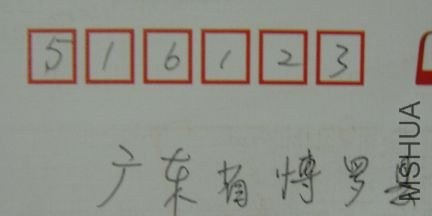 516123
广东省博罗县
MSHUA